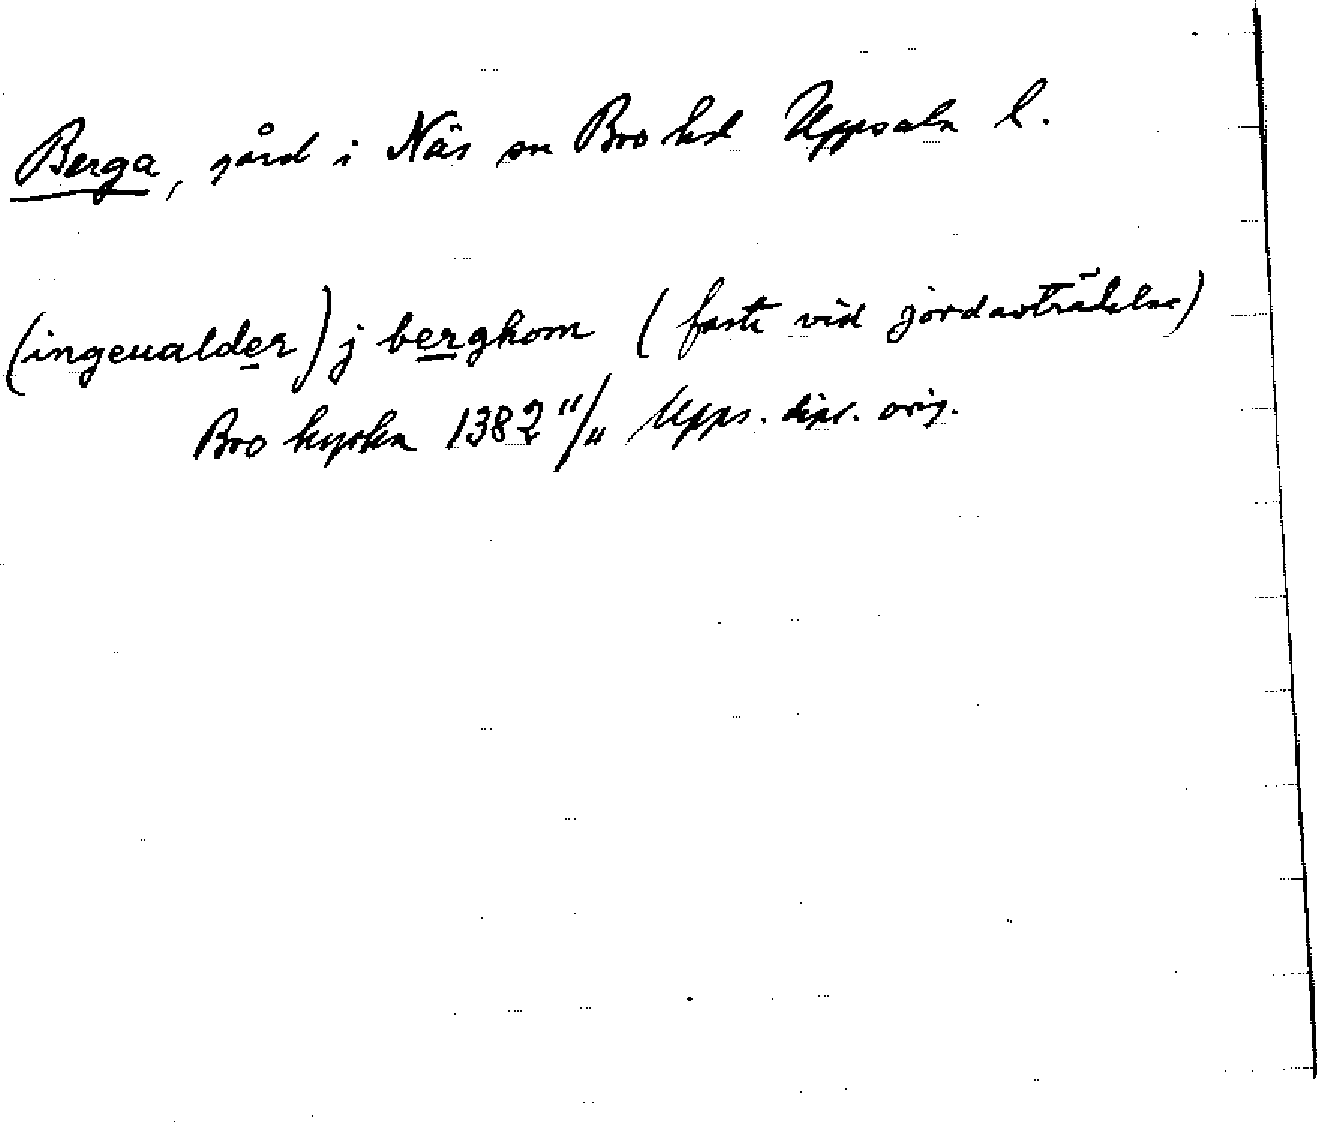 Berga, gård i Näs sn Bro hd Uppsala l.
(ingeualder) j berghom (faste vid jordavträdelse)
Bro kyrka 1382 11/11 Upps. dipl. orig.